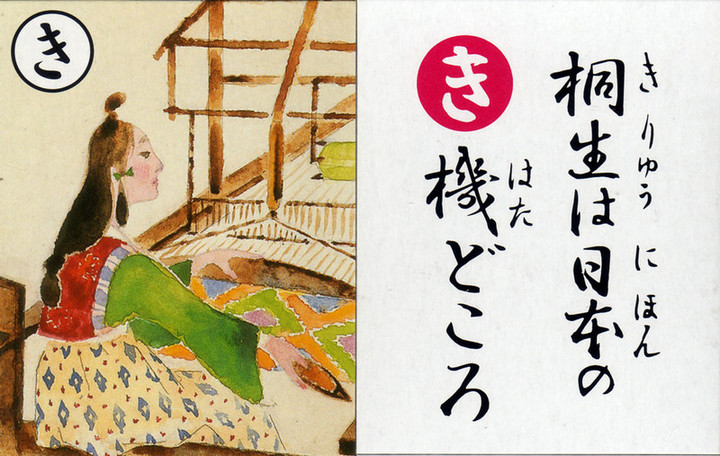 き
桐生は日本の
きりゅう にほん
き
機どころ
はた